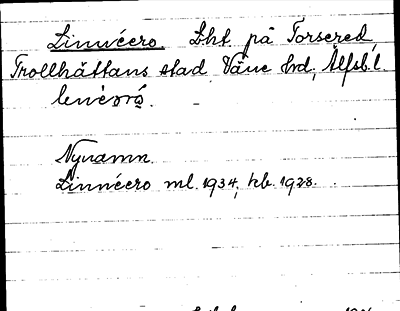 Linnéero. Lht. på Torsered,
Trollhättans stad Väne hrd, Älfsb. l.
linéɷrɷ́.
Nynamn.
Linnéero ml. 1934, kb. 1928.